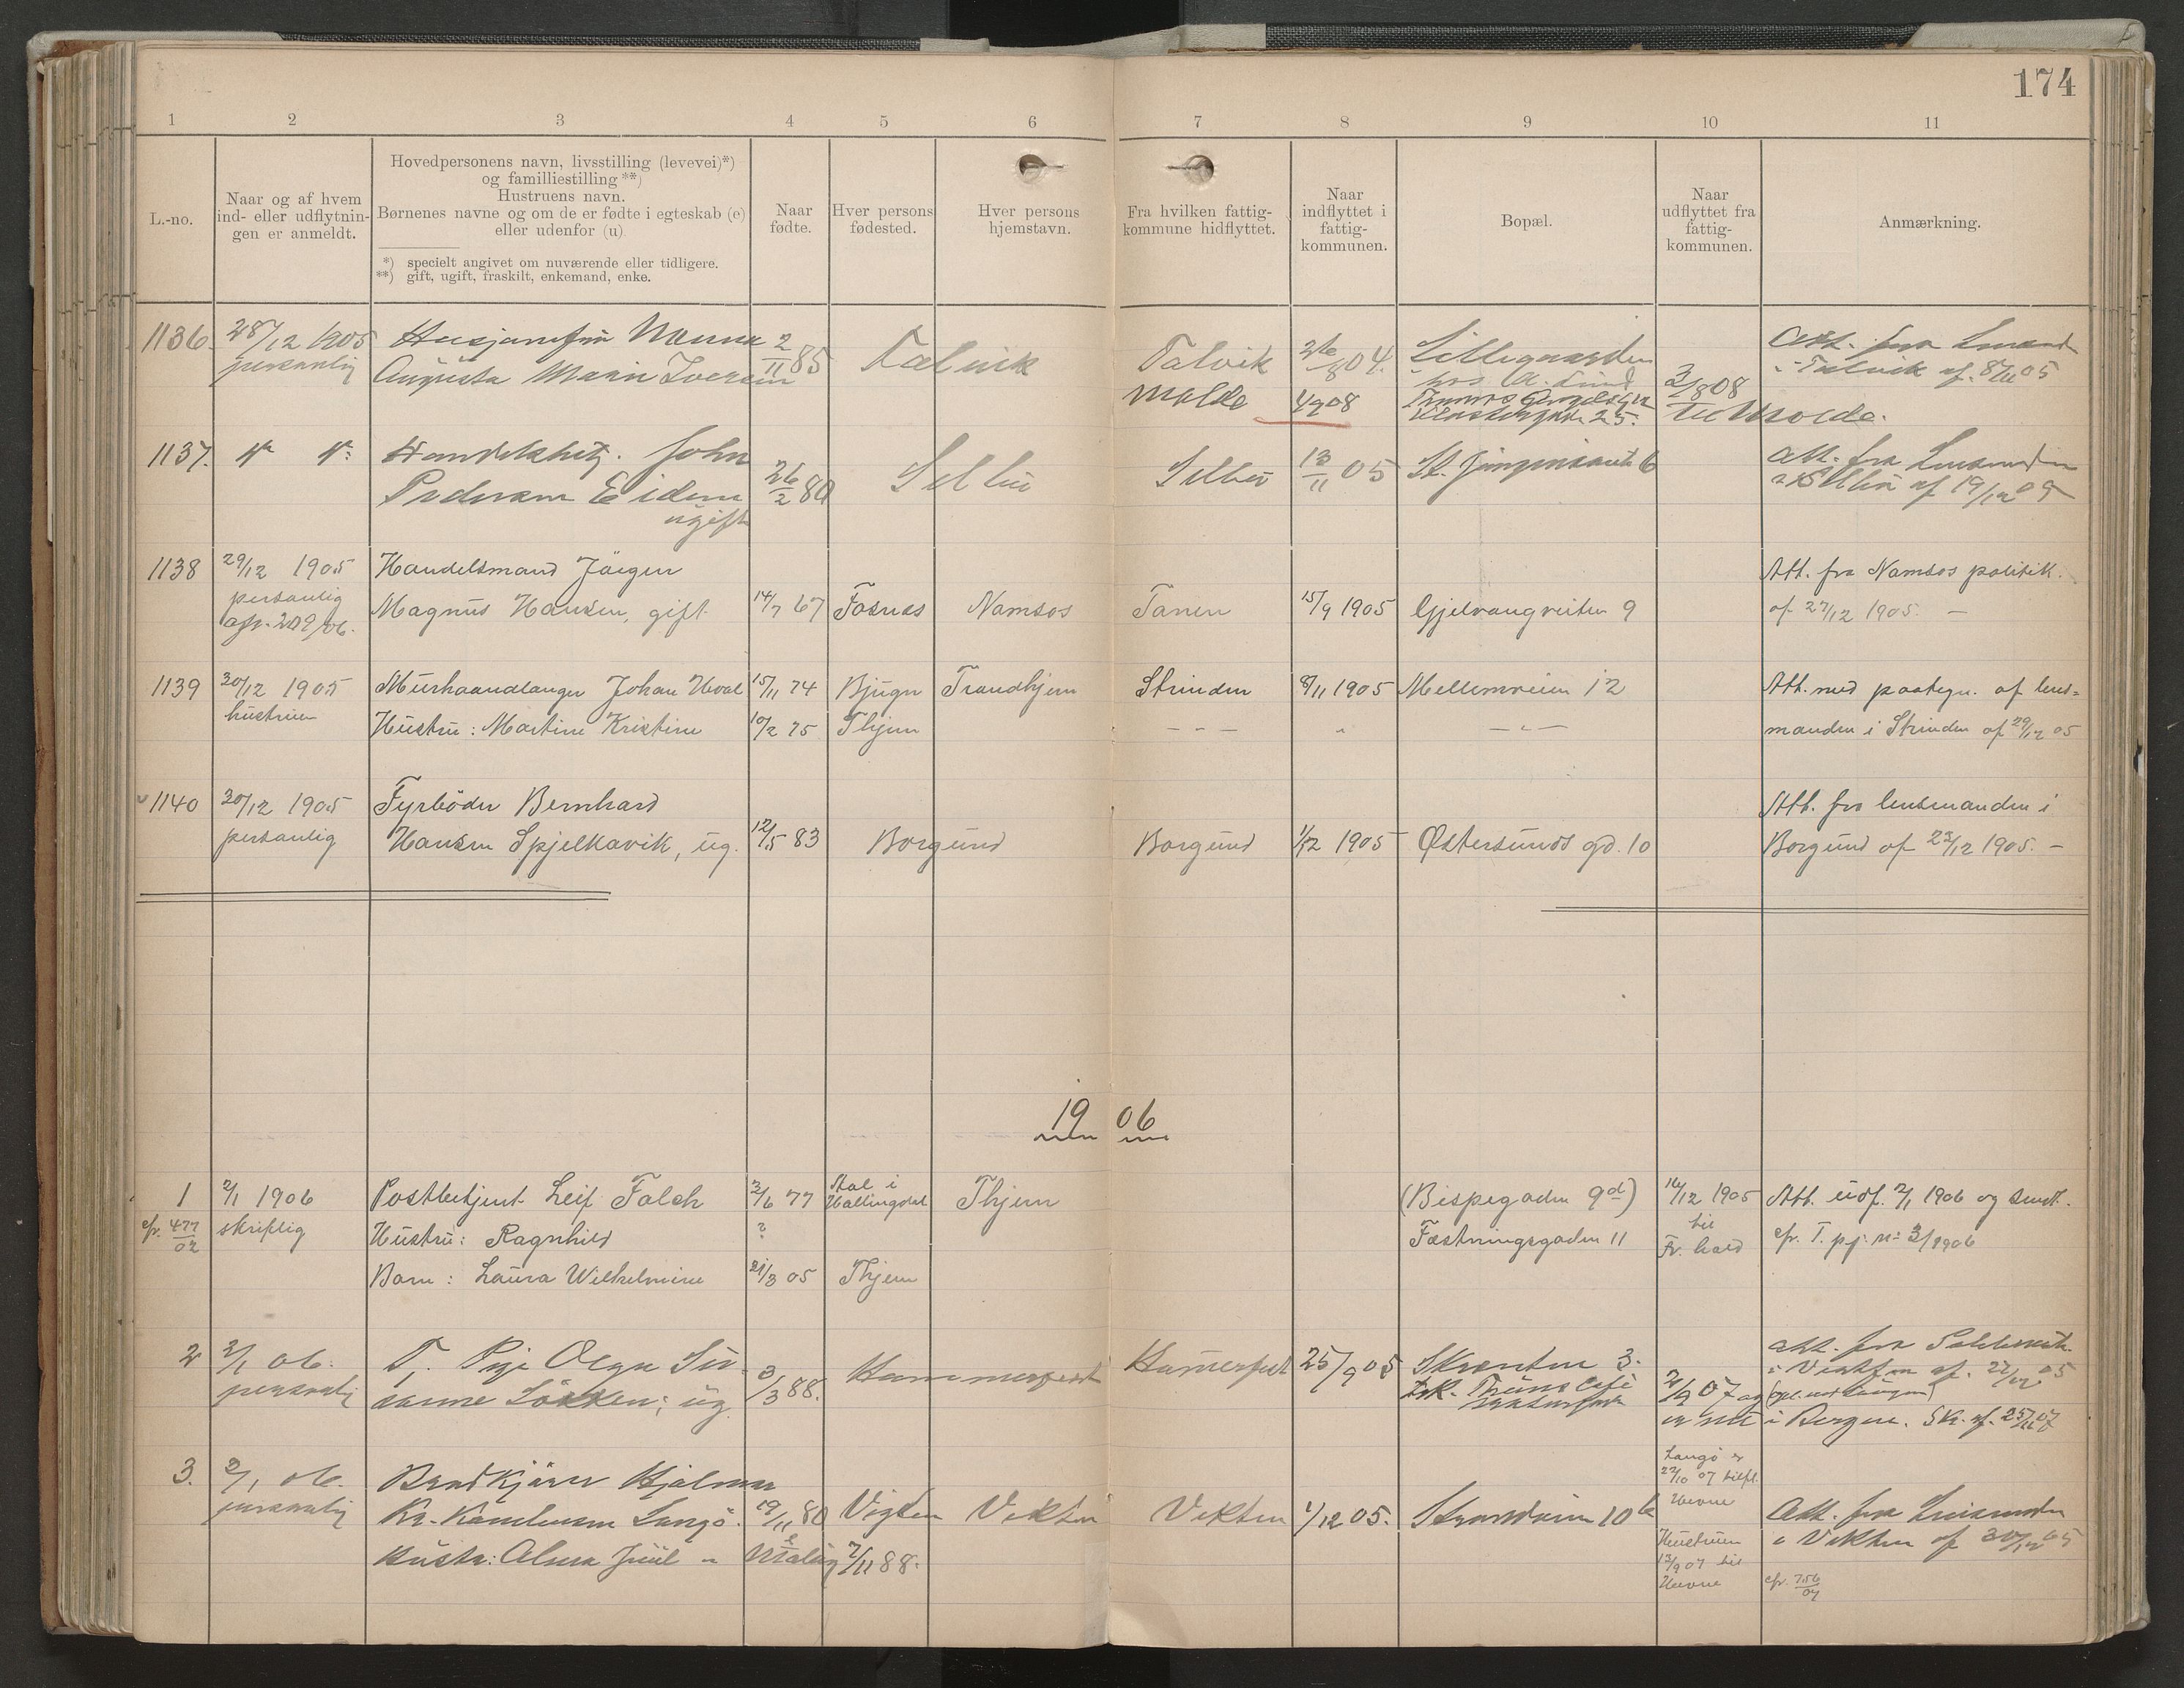 174
1 2 3 4 5 6 7 8 9 10 11
L.-no.
Naar og af hvem
ind- eller udflytnin-
gen er anmeldt.
Hovedpersonens navn, livsstilling (levevei)*)
og familliestilling **)
Hustruens navn.
Børnenes navne og om de er fødte i egteskab (e)
eller udenfor (u).
*) specielt angivet om nuværende eller tidligere.
**) gift, ugift, fraskilt, enkemand, enke.
Naar
fødte.
Hver persons
fødested.
Hver persons
hjemstavn.
Fra hvilken fattig-
kommune hidflyttet.
Naar
indflyttet i
fattig-
kommunen.
Bopæl.
Naar
udflyttet fra
fattig-
kommunen.
Anmærkning.
1136. 28/12 1905 Husjomfru Nanna 2/11 85 Talvik Talvik 26/8 04. Lillegaarden Att. fra
personlig Augusta Marie Iversen hos i Talvik af 8/11 05
Molde 4/9 08 25. 3/8 08
til Molde.
1137. Handelsbetj. John
Pedersen Eidem 26/2 80 Selbu Selbu 13/11 05 6 Att. fra Lensmanden
ugift i Selbu af 19/12 05
1138 29/12 1905 Handelsmand Jörgen Att. fra Namsos politik.
personlig Magnus Hansen, gift 14/7 67 Fosnes Namsos Tanen 15/9 1905 Gjelvangveiten 9 af 27/12 1905. —
1139 30/12 1905 Murhaandlanger Johan Hval 15/11 74 Bjugn Trondhjem Strinden 8/11 1905 Mellemveien 12 Att. med paategn. af lens=
hustruen Hustru: Martine Kristine 10/2 75 Thjem — " — " — " — manden i Strinden af 29/12 05
1140 30/12 1905 Fyrböder Bernhard Att. fra lensmanden i
personlig Hansen Spjelkavik, ug. 12/5 83 Borgund Borgund 1/12 1905 Østersunds gd. 10 Borgund af 23/12 1905. —
1906
1 2/1 1906 Postbetjent Leif Falch 3/6 77 Aal i Hallingdal Thjem (Bispegaden 9d) 16/12 1905 Att. udf. 2/1 1906 og sendt.
cfr. 477/02 skriftlig Hustru: Ragnhild ? Fæstningsgaden 11 til
Fr.hald cfr. T. pj. No 3/1906
Barn: Laura Wilhelmine 21/3 05 Thjem
2 2/1 06. T. Pige Olga Su-
personlig sanne Lökken; ug. 3/3 88. Hammerfest Hamerfest 25/9 05 Skrenten 3. Att. fra
2/9 07 og
i Bergen. Sk. af 25/11 07
3. 2/1 06. Brødkjører Hjalmar
personlig Kr. Kornelius Langö. 19/11 80 Vigten Vekten Vekten 1/12 05. Strandveien 10b Att. fra Lensmanden
Hustr: Alma Juul 7/11 88. i Vikten af 30/12 05
Langö er
22/10 07 tilfl.
Hevne
Hustruen
13/9 07 til
Hevne
cfr. 756/07